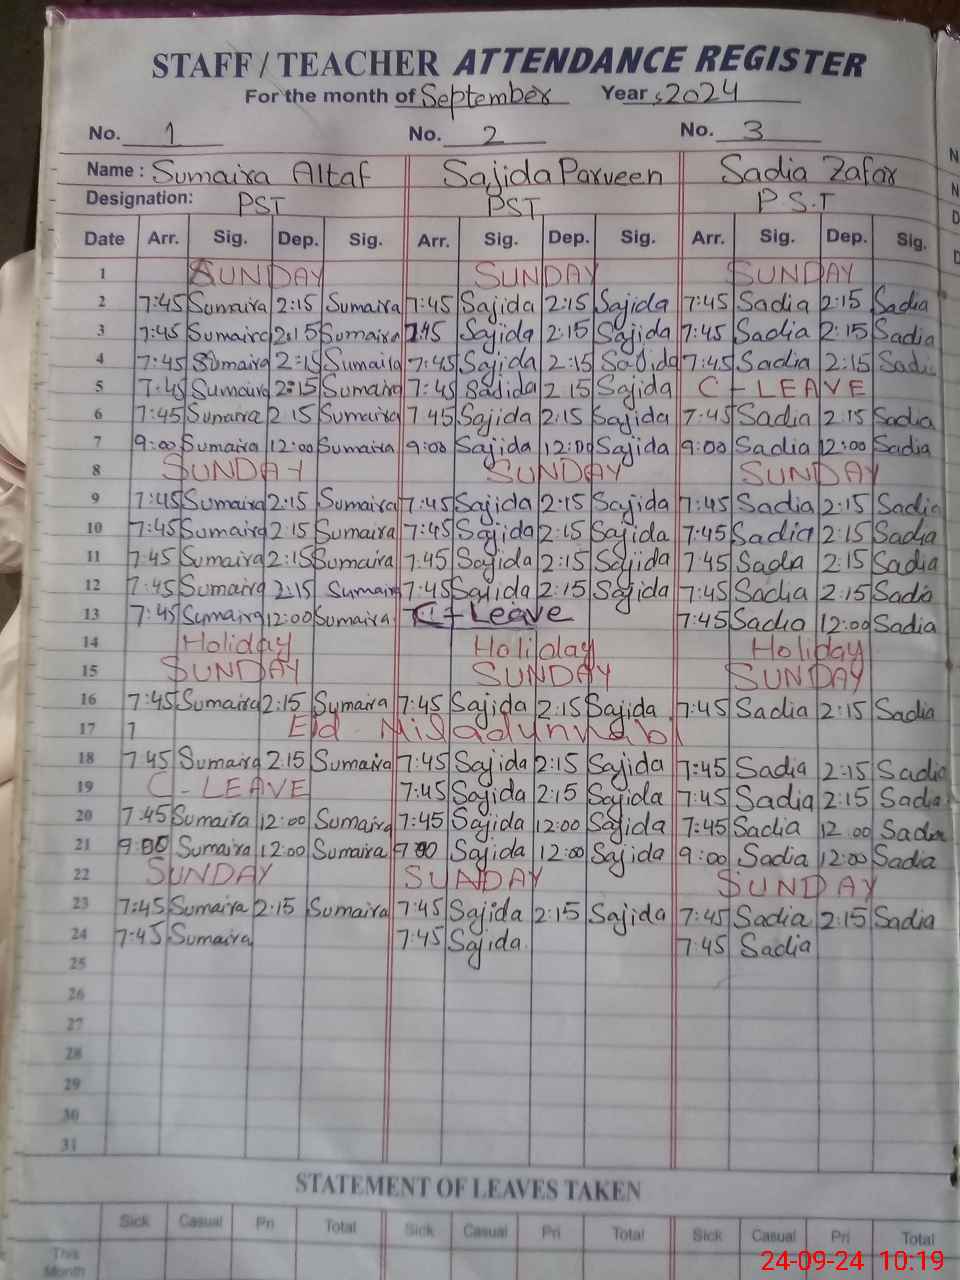 STAFF / TEACHER ATTENDANCE REGISTER
For the month of September Year 2024
No. 1 No. 2 No. 3
Name : Sumaira Altaf Sajida Parveen Sadia Zafar
Designation: PST PST P.S.T
Date Arr. Sig. Dep. Sig. Arr. Sig. Dep. Sig. Arr. Sig. Dep. Sig.
1 SUNDAY SUNDAY SUNDAY
2 7:45 Sumaira 2:15 Sumaira 7:45 Sajida 2:15 Sajida 7:45 Sadia 2:15 Sadia
3 7:45 Sumaira 2:15 Sumaira 7:45 Sajida 2:15 Sajida 7:45 Sadia 2:15 Sadia
4 7:45 Sumaira 2:15 Sumaira 7:45 Sajida 2:15 Sajida 7:45 Sadia 2:15 Sadia
5 7:45 Sumaira 2:15 Sumaira 7:45 Sajida 2 15 Sajida C-LEAVE
6 7:45 Sumaira 2 15 Sumaira 7 45 Sajida 2:15 Sajida 7:45 Sadia 2:15 Sadia
7 9:00 Sumaira 12:00 Sumaira 9:00 Sajida 12:00 Sajida 9:00 Sadia 12:00 Sadia
8 SUNDAY SUNDAY SUNDAY
9 7:45 Sumaira 2:15 Sumaira 7:45 Sajida 2:15 Sajida 7:45 Sadia 2:15 Sadia
10 7:45 Sumaira 2 15 Sumaira 7:45 Sajida 2:15 Sajida 7:45 Sadia 2:15 Sadia
11 7:45 Sumaira 2:15 Sumaira 7:45 Sajida 2:15 Sajida 7 45 Sadia 2:15 Sadia
12 7:45 Sumaira 2:15 Sumaira 7:45 Sajida 2:15 Sajida 7:45 Sadia 2:15 Sadia
13 7:45 Sumaira 12:00 Sumaira C-Leave 7:45 Sadia 12:00 Sadia
14 Holiday Holiday Holiday
15 SUNDAY SUNDAY SUNDAY
16 7:45 Sumaira 2:15 Sumaira 7:45 Sajida 2:15 Sajida 7:45 Sadia 2:15 Sadia
17 Eid Miladunnabi
18 7 45 Sumaira 2:15 Sumaira 7:45 Sajida 2:15 Sajida 7:45 Sadia 2:15 Sadia
19 C-LEAVE 7:45 Sajida 2:15 Sajida 7:45 Sadia 2:15 Sadia
20 7:45 Sumaira 12:00 Sumaira 7:45 Sajida 12:00 Sajida 7:45 Sadia 12:00 Sadia
21 9:00 Sumaira 12:00 Sumaira 9:00 Sajida 12:00 Sajida 9:00 Sadia 12:00 Sadia
22 SUNDAY SUNDAY SUNDAY
23 7:45 Sumaira 2:15 Sumaira 7:45 Sajida 2:15 Sajida 7:45 Sadia 2:15 Sadia
24 7:45 Sumaira 7:45 Sajida 7:45 Sadia
25
26
27
28
29
30
31
STATEMENT OF LEAVES TAKEN
Sick Casual Pri Total Sick Casual Pri Total Sick Casual Pri Total
This Month
24-09-24 10:19